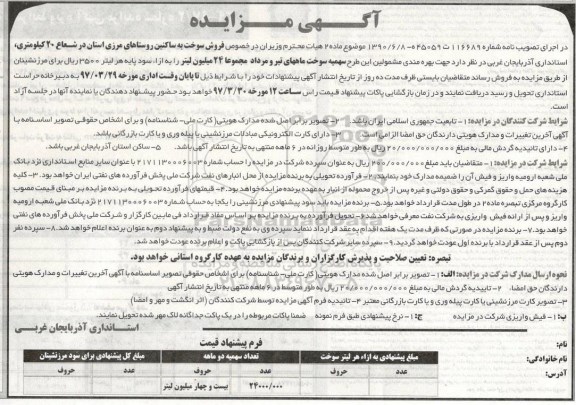 آگهی مزایده
در اجرای تصویب نامه شماره ۱۱۶۶۸۹ ت ۴۵۰۵۹ه - ۱۳۹۰/۶/۸ موضوع ماده ۲ هیات محترم وزیران در خصوص فروش سوخت به ساکنین روستاهای مرزی استان در شعاع ۲۰ کیلومتری،
استانداری آذربایجان غربی در نظر دارد جهت بهره مندی مشمولین این طرح سهمیه سوخت ماههای تیر و مرداد مجموعا ۲۴ میلیون لیتر را به ازاء سود پایه هر لیتر ۳۵۰۰ ریال برای مرزنشینان
از طریق مزایده به فروش رساند متقاضیان بایستی ظرف مدت ده روز از تاریخ انتشار آگهی پیشنهادات خود را با شرایط ذیل تا پایان وقت اداری مورخه ۹۷/۰۳/۲۹ به دبیرخانه حراست
استانداری تحویل و رسید دریافت نمایند و در زمان بازگشایی پاکات پیشنهاد قیمت راس ساعت ۱۲ مورخه ۹۷/۳/۳۰ خواهد بود حضور پیشنهاد دهندگان یا نماینده آنها در جلسه آزاد
است.
شرایط شرکت کنندگان در مزایده: ۱- تابعیت جمهوری اسلامی ایران باشد ۲- تصویر برابر اصل شده مدارک هویتی (کارت ملی – شناسنامه) و برای اشخاص حقوقی تصویر اساسنامه با
آگهی آخرین تغییرات و مدارک هویتی دارندگان حق امضا الزامی است ۳- دارای کارت الکترونیکی مبادلات مرزنشینی یا پیله وری و یا کارت بازرگانی باشد.
۴- دارای تائیدیه گردش مالی به مبلغ ۲۰/۰۰۰/۰۰۰/۰۰۰ ریال به طور متوسط روزانه در ۶ ماهه منتهی به تاریخ انتشار آگهی باشد. ۵- ساکن استان آذربایجان غربی باشد.
شرایط شرکت در مزایده: ۱- متقاضیان باید مبلغ ۲۰/۰۰۰/۰۰۰/۰۰۰ ریال به عنوان سپرده شرکت در مزایده را حساب شماره ۲۱۷۱۱۳۰۰۰۶۰۰۳ با عنوان سایر منابع استانداری نزد بانک
ملی شعبه ارومیه واریز و فیش آن را ضمیمه مدارک خود بنمایند. ۲- فرآورده تحویلی به برنده مزایده از محل انبارهای نفت شرکت ملی پخش فرآورده های نفتی ایران خواهد بود. ۳- کلیه
هزینه های حمل و حقوق گمرکی و حقوق دولتی و غیره پس از خروج محموله از انبار به عهده برنده مزایده خواهد بود. ۴- قیمتهای فرآورده تحویلی به برنده مزایده بر مبنای قیمت مصوب
کارگروه مرکزی تبصره ماده ۲ در طول مدت قرارداد خواهد بود. ۵- برنده مزایده باید سود پیشنهادی مرزنشینی را یکجا به حساب شماره ۲۱۷۱۱۳۰۰۰۶۰۰۳ نزد بانک ملی شعبه ارومیه
واریز و پس از ارائه فیش واریزی به شرکت نفت معرفی خواهد شد. ۶- تحویل فرآورده به برنده مزایده بر اساس مفاد قرارداد فی مابین کارگزار و شرکت ملی پخش فرآورده های نفتی
خواهد بود. ۷- برنده مزایده در صورتی که ظرف مدت یک هفته اقدام به عقد قرارداد ننماید سپرده وی به نفع دولت ضبط و به پیشنهاد دوم به عنوان برنده اعلام خواهد شد. ۸- سپرده نفر
دوم پس از عقد قرارداد با برنده اول عودت خواهد گردید. ۹- سپرده سایر شرکت کنندگان پس از بازگشایی پاکت و اعلام برنده عودت خواهد شد.
تبصره: تعیین صلاحیت و پذیرش کارگزاران و برندگان مزایده به عهده کارگروه استانی خواهد بود.
نحوه ارسال مدارک شرکت در مزایده: الف: ۱- تصویر برابر اصل شده مدارک هویتی (کارت ملی- شناسنامه) برای اشخاص حقوقی تصویر اساسنامه با آگهی آخرین تغییرات و مدارک هویتی
دارندگان حق امضا ۲- تاییدیه گردش مالی به مبلغ ۲۰/۰۰۰/۰۰۰/۰۰۰ ریال به طور متوسط در ۶ ماهه منتهی به تاریخ انتشار آگهی
۳- تصویر کارت مرزنشینی یا کارت پیله وری و یا کارت بازرگانی معتبر ۴- تائیدیه فرم آگهی مزایده توسط شرکت کنندگان (اثر انگشت و مهر و امضا)
ب: ۱- فیش واریزی شرکت در مزایده ج: ۱- نرخ پیشنهادی طبق فرم نمونه ضمنا پاکات مربوطه را در یک پاکت جداگانه لاک مهر شده تحویل نمایند.
استانداری آذربایجان غربی
فرم پیشنهاد قیمت
نام:
نام خانوادگی:
آدرس:
مبلغ پیشنهادی به ازاء هر لیتر سوخت
تعداد سهمیه دو ماهه
مبلغ کل پیشنهادی برای سود مرزنشینان
عدد حروف عدد حروف عدد حروف
۲۴/۰۰۰/۰۰۰ بیست و چهار میلیون لیتر